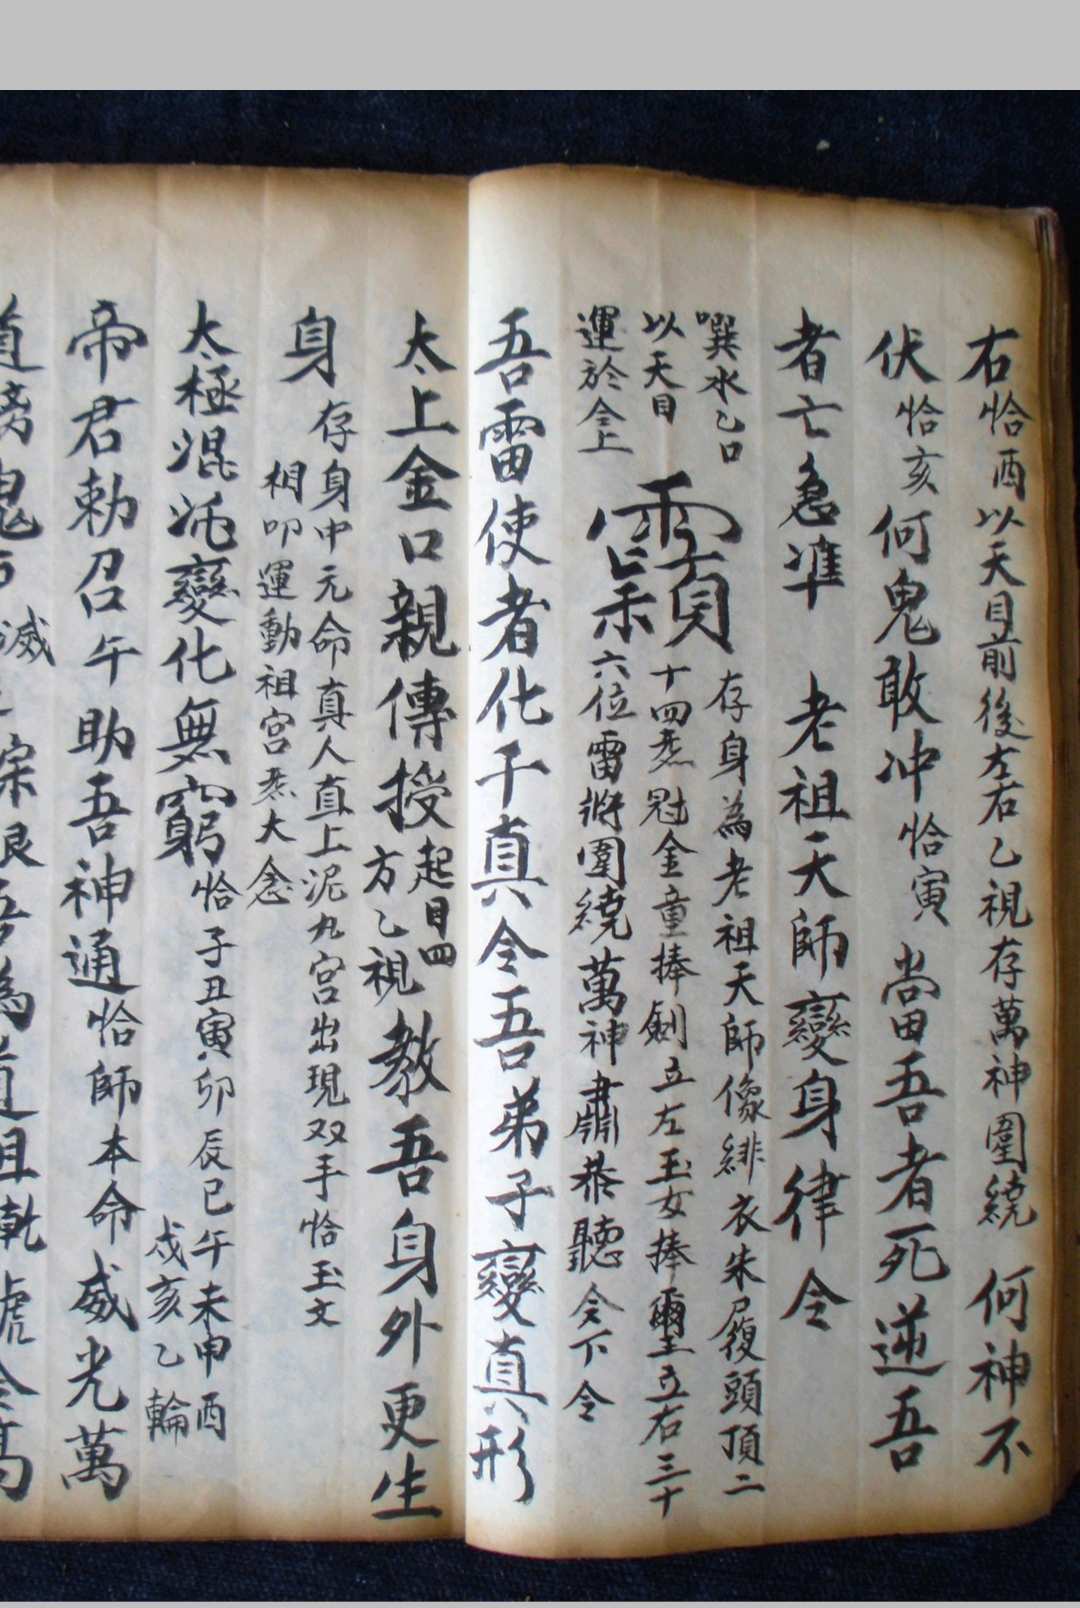 右恰酉以天目前後左右乙視存萬神圍繞何神不
伏恰亥何鬼敢冲恰寅當吾者死逆吾
者亡急準 老祖天師變身律令
噀水乙口
以天目
運於仝上
存身為老祖天師像緋衣朱履頭頂二
十四炁冠金童捧劍立左玉女捧璽立右三十
六位雷將圍繞萬神肅恭聽令下令
吾雷使者化千真令吾弟子變真形
太上金口親傳授起目四方乙視教吾身外更生
身存身中元命真人直上泥丸宮出現双手恰玉文
相叩運動祖宮炁大念
太極混沌變化無窮恰子丑寅卯辰巳午未申酉
戍亥乙輪
帝君勅召午助吾神通恰師本命威光萬